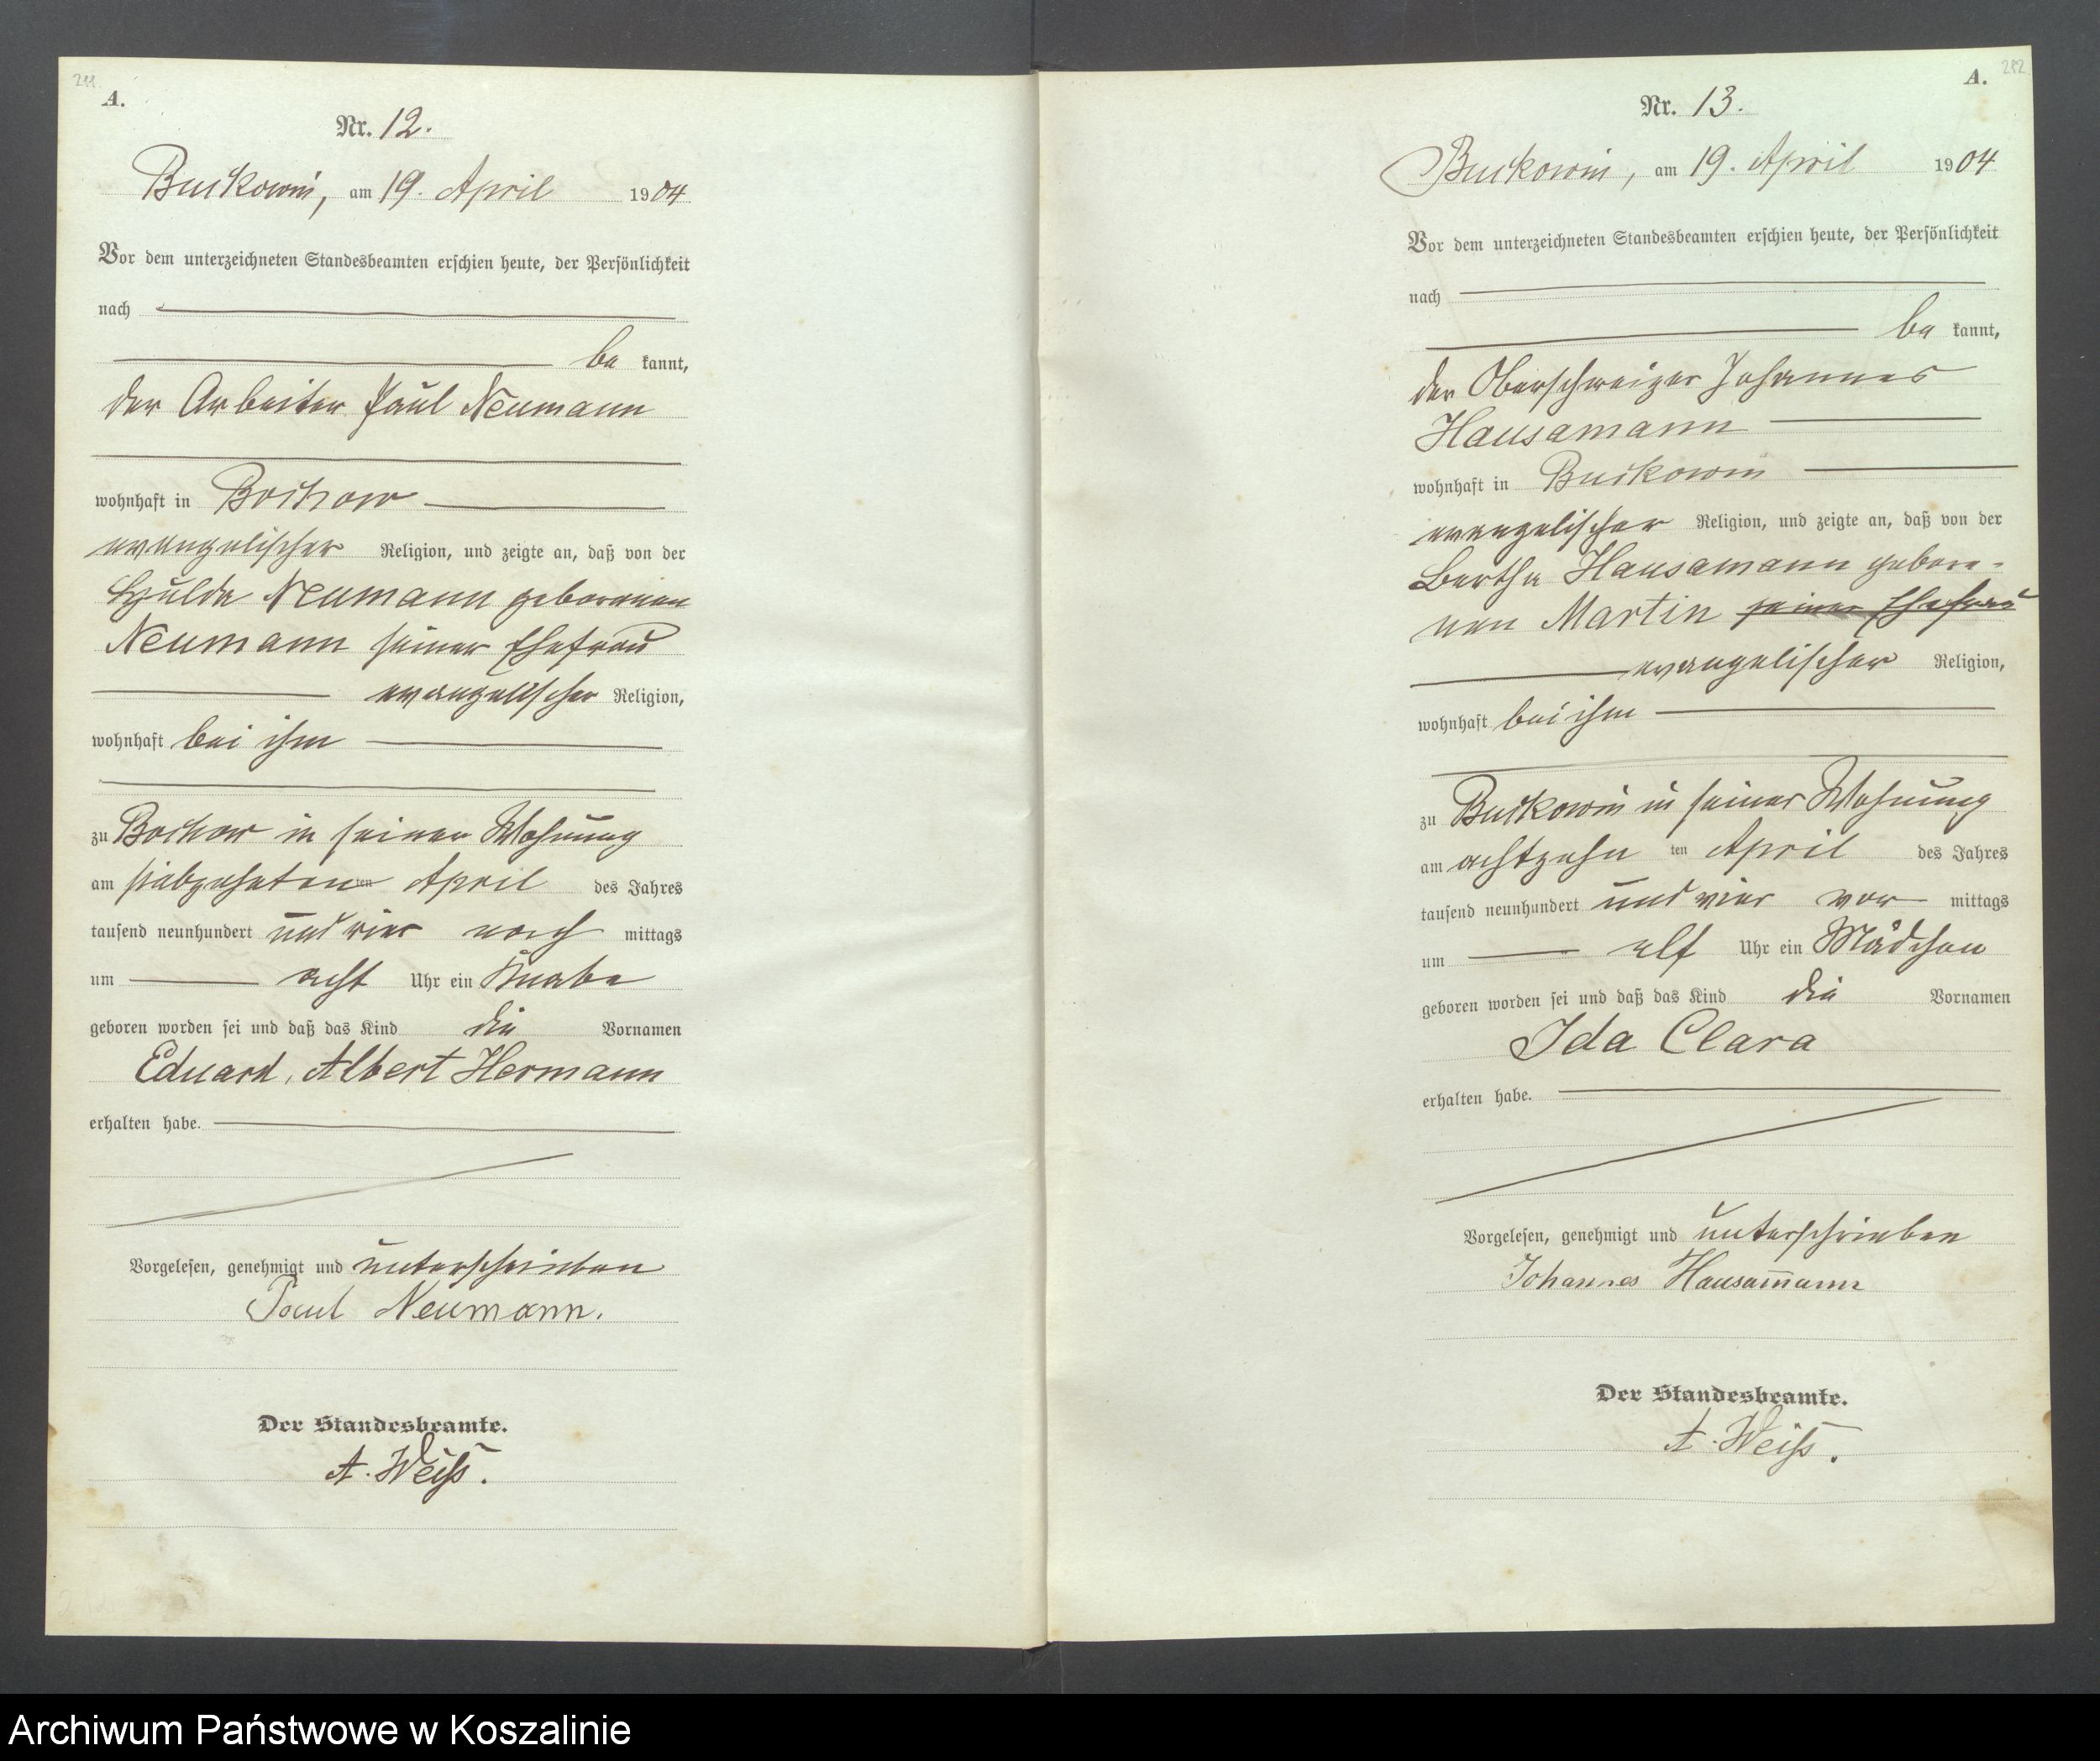 211
A.
Nr. 12.
Buckowin, am 19. April 1904
Vor dem unterzeichneten Standesbeamten erschien heute, der Persönlichkeit
nach
be kannt,
der Arbeiter Paul Neumann
wohnhaft in Bochow
evangelischer Religion, und zeigte an, daß von der
Hulda Neumann geborenen
Neumann seiner Ehefrau
evangelischer Religion,
wohnhaft bei ihm
zu Bochow in seiner Wohnung
am siebzehnten ten April des Jahres
tausend neunhundert und vier nach mittags
um acht Uhr ein Knabe
geboren worden sei und daß das Kind die Vornamen
Eduard, Albert Hermann
erhalten habe.
Vorgelesen, genehmigt und unterschrieben
Paul Neumann.
Der Standesbeamte.
A. Weiß.
212
A.
Nr. 13.
Buckowin, am 19. April 1904
Vor dem unterzeichneten Standesbeamten erschien heute, der Persönlichkeit
nach
be kannt,
der Oberschweizer Johannes
Hausamann
wohnhaft in Buckowin
evangelischer Religion, und zeigte an, daß von der
Bertha Hausamann gebore-
nen Martin seiner Ehefrau
evangelischer Religion,
wohnhaft bei ihm
zu Buckowin in seiner Wohnung
am achtzehn ten April des Jahres
tausend neunhundert und vier vor mittags
um elf Uhr ein Mädchen
geboren worden sei und daß das Kind die Vornamen
Ida Clara
erhalten habe.
Vorgelesen, genehmigt und unterschrieben
Johannes Hausam̅ann
Der Standesbeamte.
A. Weiß.
Archiwum Państwowe w Koszalinie